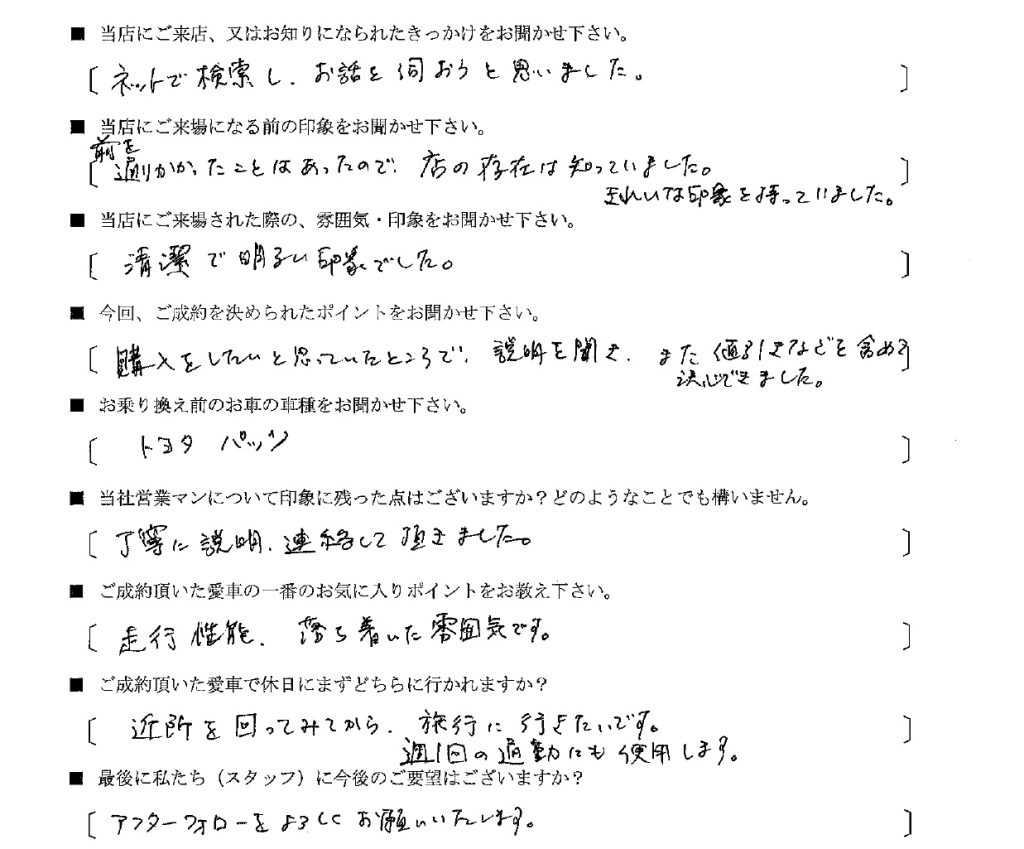 ■ 当店にご来店、又はお知りになられたきっかけをお聞かせ下さい。
［ ネットで検索し、お話を伺おうと思いました。 ］
■ 当店にご来場になる前の印象をお聞かせ下さい。
前を
［ 通りかかったことはあったので、店の存在は知っていました。 ］
きれいな印象を持っていました。
■ 当店にご来場された際の、雰囲気・印象をお聞かせ下さい。
［ 清潔で明るい印象でした。 ］
■ 今回、ご成約を決められたポイントをお聞かせ下さい。
［ 購入をしたいと思っていたところで、説明を聞き、また値引きなどを含めて ］
決心できました。
■ お乗り換え前のお車の車種をお聞かせ下さい。
［ トヨタ パッソ ］
■ 当社営業マンについて印象に残った点はございますか？どのようなことでも構いません。
［ 丁寧に説明、連絡して頂きました。 ］
■ ご成約頂いた愛車の一番のお気に入りポイントをお教え下さい。
［ 走行性能、落ち着いた雰囲気です。 ］
■ ご成約頂いた愛車で休日にまずどちらに行かれますか？
［ 近所を回ってみてから、旅行に行きたいです。 ］
週1回の通勤にも使用します。
■ 最後に私たち（スタッフ）に今後のご要望はございますか？
［ アフターフォローをよろしくお願いいたします。 ］